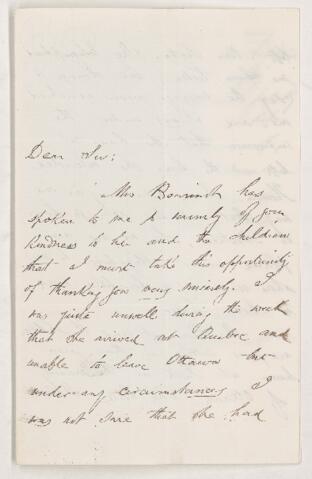 Dear Sir:
Mrs Bourinot has
spoken to me so warmly of your
kindness to her and the children
that I must take this opportunity
of thanking you very sincerely. I
was quite unwell during the week
that she arrived at Quebec and
unable to leave Ottawa but
under any circumstances I
was not sure that she had